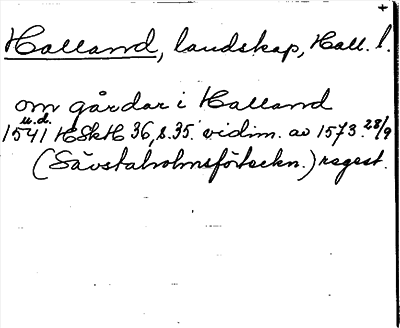 Halland, landskap, Hall. l.
om gårdar i Halland
u.d.
1541 HSkH 36, s. 35. vidim. av 1573 28/9
(Sävstaholmsförteckn.) regest.